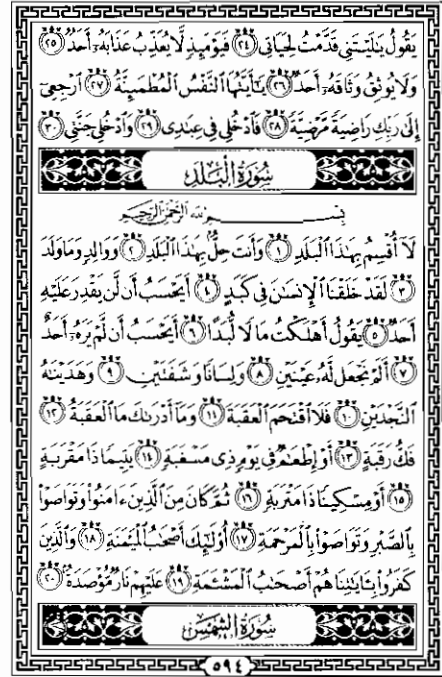 يَقُولُ يَـٰلَيْتَنِى قَدَّمْتُ لِحَيَاتِى ٢٤ فَيَوْمَئِذٍ لَّا يُعَذِّبُ عَذَابَهُۥٓ أَحَدٌ ٢٥
وَلَا يُوثِقُ وَثَاقَهُۥٓ أَحَدٌ ٢٦ يَـٰٓأَيَّتُهَا ٱلنَّفْسُ ٱلْمُطْمَئِنَّةُ ٢٧ ٱرْجِعِىٓ
إِلَىٰ رَبِّكِ رَاضِيَةً مَّرْضِيَّةً ٢٨ فَٱدْخُلِى فِى عِبَـٰدِى ٢٩ وَٱدْخُلِى جَنَّتِى ٣٠
سُورَةُ الْبَلَدِ
بِسْمِ ٱللَّهِ ٱلرَّحْمَـٰنِ ٱلرَّحِيمِ
لَآ أُقْسِمُ بِهَـٰذَا ٱلْبَلَدِ ١ وَأَنتَ حِلٌّۢ بِهَـٰذَا ٱلْبَلَدِ ٢ وَوَالِدٍ وَمَا وَلَدَ
٣ لَقَدْ خَلَقْنَا ٱلْإِنسَـٰنَ فِى كَبَدٍ ٤ أَيَحْسَبُ أَن لَّن يَقْدِرَ عَلَيْهِ
أَحَدٌ ٥ يَقُولُ أَهْلَكْتُ مَالًا لُّبَدًا ٦ أَيَحْسَبُ أَن لَّمْ يَرَهُۥٓ أَحَدٌ
٧ أَلَمْ نَجْعَل لَّهُۥ عَيْنَيْنِ ٨ وَلِسَانًا وَشَفَتَيْنِ ٩ وَهَدَيْنَـٰهُ
ٱلنَّجْدَيْنِ ١٠ فَلَا ٱقْتَحَمَ ٱلْعَقَبَةَ ١١ وَمَآ أَدْرَىٰكَ مَا ٱلْعَقَبَةُ ١٢
فَكُّ رَقَبَةٍ ١٣ أَوْ إِطْعَـٰمٌ فِى يَوْمٍ ذِى مَسْغَبَةٍ ١٤ يَتِيمًا ذَا مَقْرَبَةٍ
١٥ أَوْ مِسْكِينًا ذَا مَتْرَبَةٍ ١٦ ثُمَّ كَانَ مِنَ ٱلَّذِينَ ءَامَنُوا۟ وَتَوَاصَوْا۟
بِٱلصَّبْرِ وَتَوَاصَوْا۟ بِٱلْمَرْحَمَةِ ١٧ أُو۟لَـٰٓئِكَ أَصْحَـٰبُ ٱلْمَيْمَنَةِ ١٨ وَٱلَّذِينَ
كَفَرُوا۟ بِـَٔايَـٰتِنَا هُمْ أَصْحَـٰبُ ٱلْمَشْـَٔمَةِ ١٩ عَلَيْهِمْ نَارٌ مُّؤْصَدَةٌۢ ٢٠
سُورَةُ الشَّمْسِ
٥٩٤